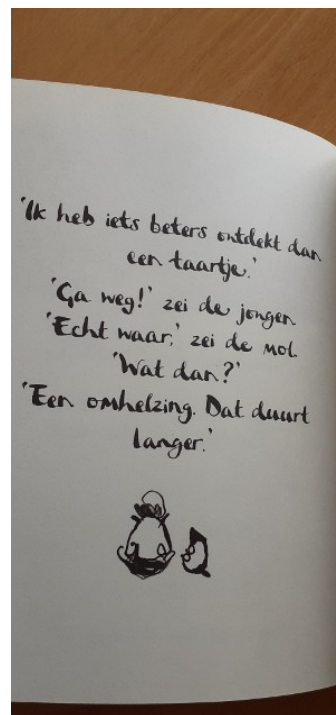 'Ik heb iets beters ontdekt dan
een taartje.'
'Ga weg!' zei de jongen
'Echt waar,' zei de mol.
'Wat dan?'
'Een omhelzing. Dat duurt
langer.'